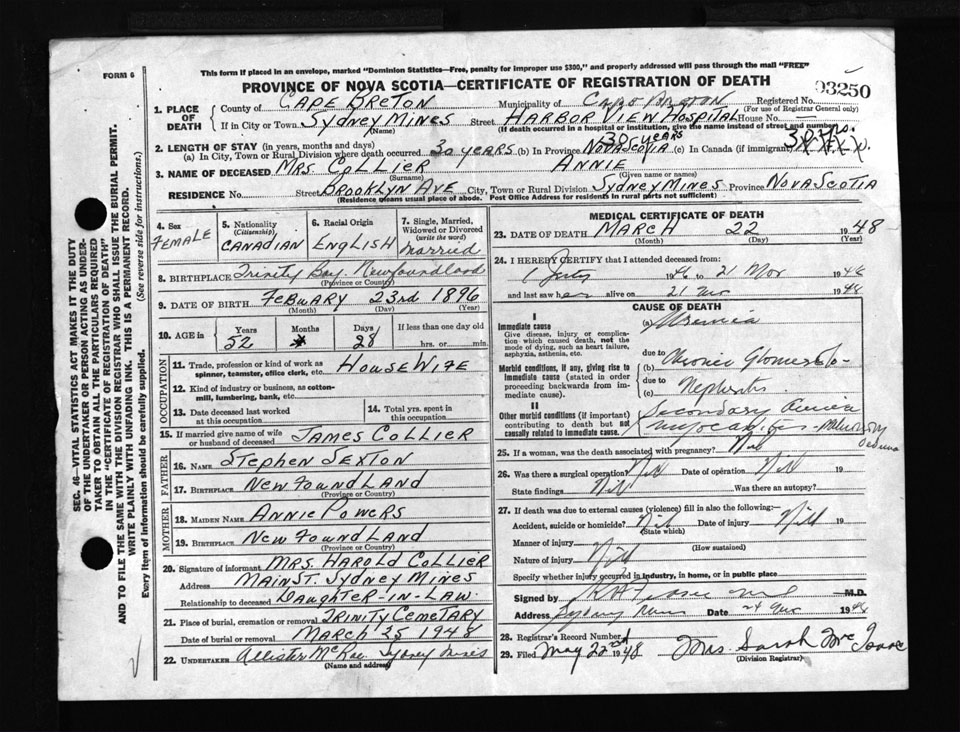 FORM 6
This form if placed in an envelope, marked "Dominion Statistics—Free, penalty for improper use $300," and properly addressed will pass through the mail "FREE"
PROVINCE OF NOVA SCOTIA—CERTIFICATE OF REGISTRATION OF DEATH
93250
1. PLACE OF DEATH
County of CAPE BRETON Municipality of CAPE BRETON Registered No.
(For use of Registrar General only)
If in City or Town SYDNEY MINES Street HARBOR VIEW HOSPITAL House No. —
(Name) (If death occurred in a hospital or institution, give the name instead of street and number)
2. LENGTH OF STAY (in years, months and days)
(a) In City, Town or Rural Division where death occurred 30 YEARS (b) In Province 30 YEARS NOVA SCOTIA (c) In Canada (if immigrant)
3. NAME OF DECEASED MRS. COLLIER ANNIE
(Surname) (Given name or names)
RESIDENCE No. Street BROOKLYN AVE City, Town or Rural Division SYDNEY MINES Province NOVA SCOTIA
(Residence means usual place of abode. Post Office Address for residents in rural parts not sufficient)
SEC. 46—VITAL STATISTICS ACT MAKES IT THE DUTY
OF THE UNDERTAKER OR PERSON ACTING AS UNDER-
TAKER TO OBTAIN ALL THE PARTICULARS REQUIRED
IN THE "CERTIFICATE OF REGISTRATION OF DEATH"
AND TO FILE THE SAME WITH THE DIVISION REGISTRAR WHO SHALL ISSUE THE BURIAL PERMIT.
WRITE PLAINLY WITH UNFADING INK. THIS IS A PERMANENT RECORD.
Every item of information should be carefully supplied. (See reverse side for instructions.)
4. Sex
FEMALE
5. Nationality
(Citizenship)
CANADIAN
6. Racial Origin
ENGLISH
7. Single, Married, Widowed or Divorced
(write the word)
Married
8. BIRTHPLACE Trinity Bay. Newfoundland
(Province or Country)
9. DATE OF BIRTH FEBUARY 23rd 1896
(Month) (Day) (Year)
10. AGE in
Years 52
Months
Days 28
If less than one day old
hrs. or min.
OCCUPATION
11. Trade, profession or kind of work as HOUSE WIFE
spinner, teamster, office clerk, etc.
12. Kind of industry or business, as cotton-
mill, lumbering, bank, etc.
13. Date deceased last worked
at this occupation
14. Total yrs. spent in
this occupation
15. If married give name of wife
or husband of deceased JAMES COLLIER
FATHER
16. NAME STEPHEN SEXTON
17. BIRTHPLACE NEWFOUNDLAND
(Province or Country)
MOTHER
18. MAIDEN NAME ANNIE POWERS
19. BIRTHPLACE NEWFOUNDLAND
(Province or Country)
20. Signature of informant MRS. HAROLD COLLIER
Address MAIN ST. SYDNEY MINES
Relationship to deceased DAUGHTER-IN-LAW.
21. Place of burial, cremation or removal TRINITY CEMETARY
Date of burial or removal MARCH 25 1948
22. UNDERTAKER Allister McRae Sydney Mines
(Name and address)
MEDICAL CERTIFICATE OF DEATH
23. DATE OF DEATH MARCH 22 1948
(Month) (Day) (Year)
24. I HEREBY CERTIFY that I attended deceased from:
1 July 1946 to 21 Mar 1948
and last saw her alive on 21 Mar 1948
CAUSE OF DEATH
I
Immediate cause
Give disease, injury or complica-
tion which caused death, not the
mode of dying, such as heart failure,
asphyxia, asthenia, etc.
(a) Uremia
due to
Morbid conditions, if any, giving rise to
immediate cause (stated in order
proceeding backwards from im-
mediate cause).
(b) Chronic Glomerulo-
due to
(c) Nephritis.
II
Other morbid conditions (if important)
contributing to death but not
causally related to immediate cause.
Secondary Anemia
Myocarditis - Pulmonary
Oedema
25. If a woman, was the death associated with pregnancy? No
26. Was there a surgical operation? Nil Date of operation Nil 19
State findings Nil Was there an autopsy?
27. If death was due to external causes (violence) fill in also the following:—
Accident, suicide or homicide? Nil Date of injury Nil 19
(State which)
Manner of injury
(How sustained)
Nature of injury Nil
Specify whether injury occurred in industry, in home, or in public place
Signed by M.D.
Address Sydney Mines Date 24 Mar 1948
28. Registrar's Record Number
29. Filed May 22nd 1948 Mrs. Sarah McIsaac
(Division Registrar)